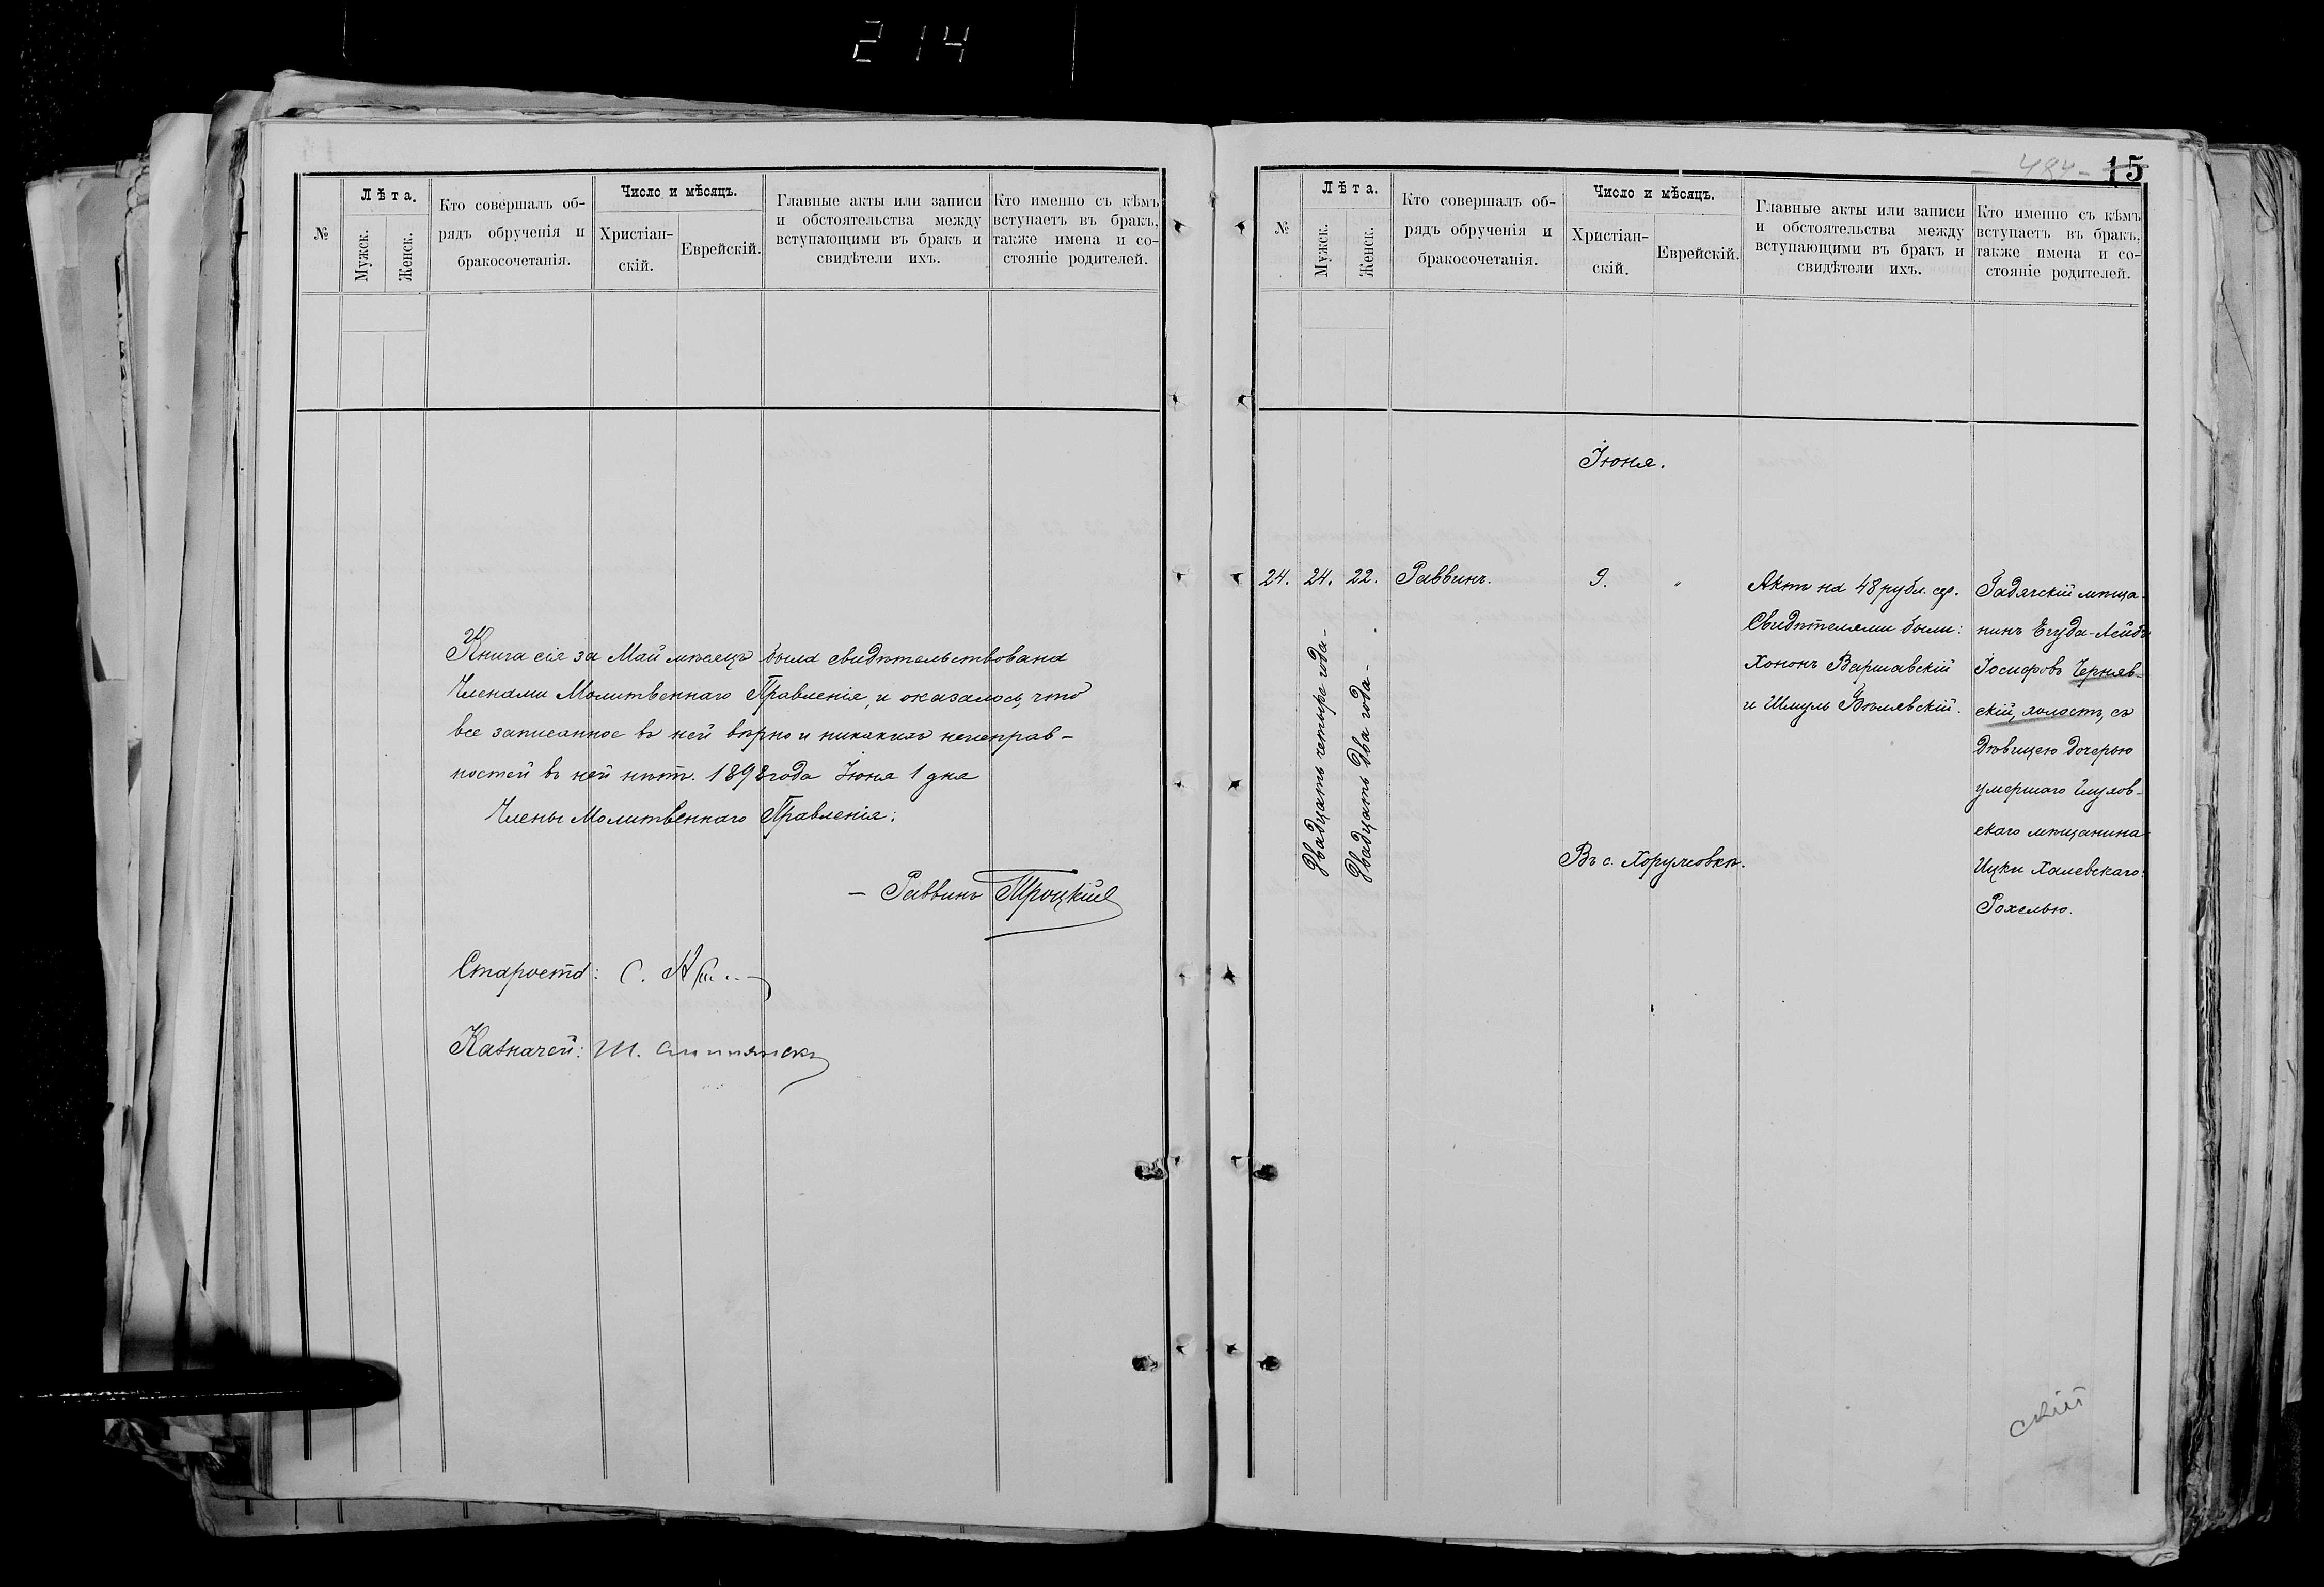 214
№
Лѣта.
Мужск.
Женск.
Кто совершалъ об-
рядъ обрученія и
бракосочетанія.
Число и мѣсяцъ.
Христіан-
скій.
Еврейскій.
Главные акты или записи
и обстоятельства между
вступающими въ бракъ и
свидѣтели ихъ.
Кто именно съ кѣмъ
вступаетъ въ бракъ,
также имена и со-
стояніе родителей.
Книга сія за Май мѣсяцъ была свидѣтельствована
Членами Молитвеннаго Правленія, и оказалось, что
все записанное въ ней вѣрно и никакихъ неисправ-
ностей въ ней нѣтъ. 1898 года Іюня 1 дня
Члены Молитвеннаго Правленія:
— Раввинъ Троцкій
Староста: С.
Казначей: Ш.
484 15
№
Лѣта.
Мужск.
Женск.
Кто совершалъ об-
рядъ обрученія и
бракосочетанія.
Число и мѣсяцъ.
Христіан-
скій.
Еврейскій.
Главные акты или записи
и обстоятельства между
вступающими въ бракъ и
свидѣтели ихъ.
Кто именно съ кѣмъ
вступаетъ въ бракъ,
также имена и со-
стояніе родителей.
Іюня.
24. 24. 22. Раввинъ. 9. "
Двадцать четыре года-
Двадцать два года-
Въ с. Хоружовкѣ.
Актъ на 48 рубл. сер.
Свидѣтелями были:
Хононъ Варшавскій
и Шмуль Бѣлявскій.
Гадячскій мѣща-
нинъ Егуда-Лейбъ
Іосифовъ Черняв-
скій, холостъ, съ
дѣвицею дочерью
умершаго Глухов-
скаго мѣщанина
Ицки Халевскаго:
Рохелью.
скій